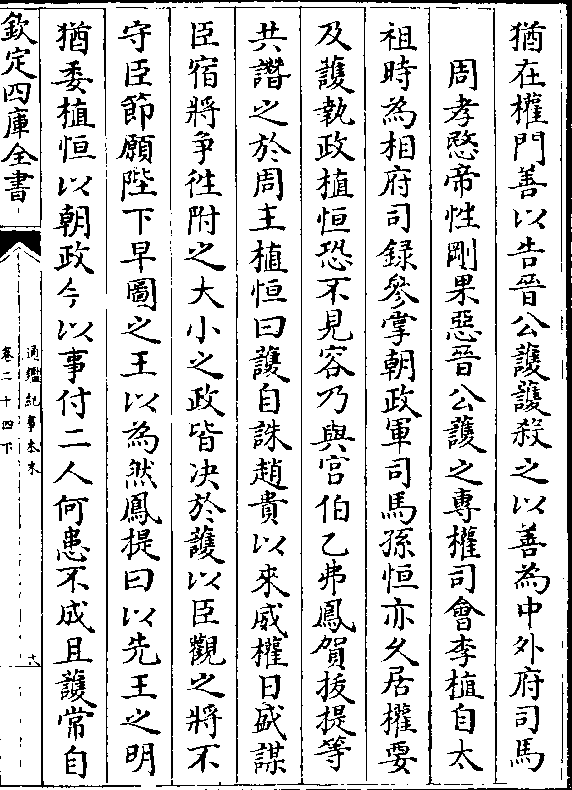 猶在權門善以告晉公護護殺之以善為中外府司馬
周孝愍帝性剛果惡晉公護之專權司會李植自太
祖時為相府司錄參掌朝政軍司馬孫恒亦乆居權要
及護執政植恒恐不見容乃與宫伯乙弗鳳賀拔提等
共譖之於周主植恒曰護自誅趙貴以來威權日盛謀
臣宿將争徃附之大小之政皆决於護以臣觀之將不
守臣節願陛下早圖之王以為然鳳提曰以先王之明
猶委植恒以朝政今以事付二人何患不成且護常自
欽定四庫全書
通鑑紀事本末
卷二十四下
十八